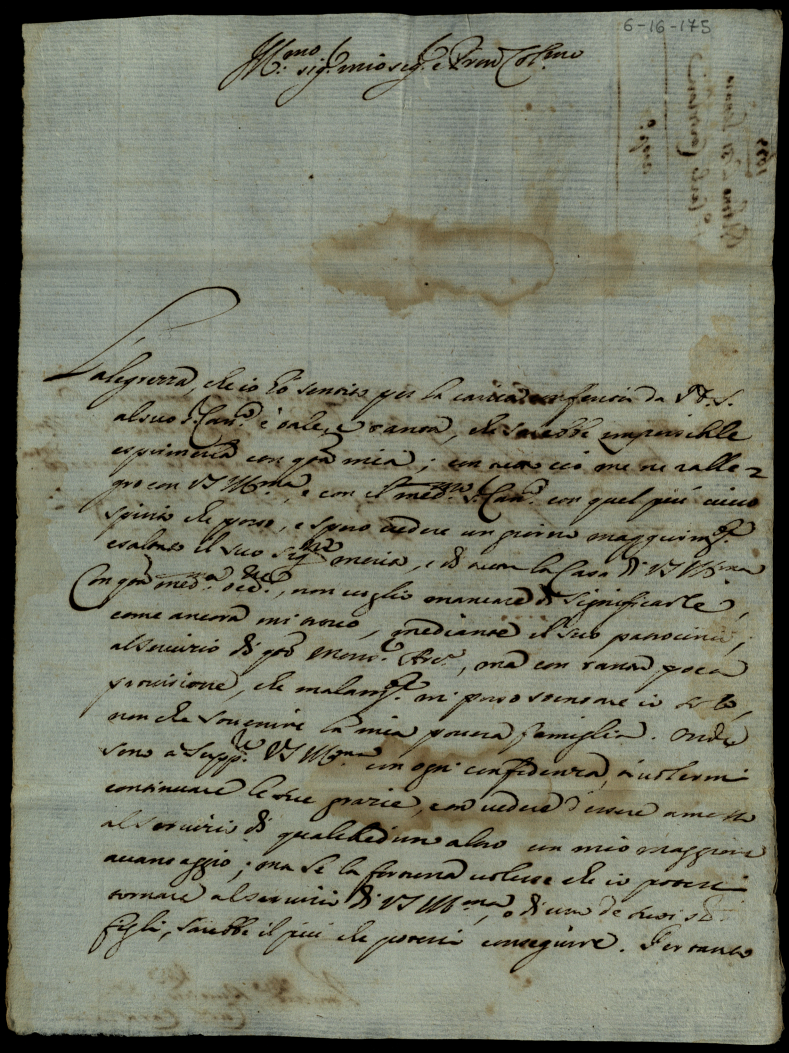 6-16-175
Ill.mo sig.r mio sig.r e Pron Col.mo
L'alegrezza, che io hò sentita per la carica conferita da V.S.
al suo S. Can.co è tale, e tanta, che sarebbe impossibile
esprimerla con q.ta mia; con tutto ciò me ne ralle=
gro con VS Ill.ma, e con il med.mo S. Can.co con quel più vivo
spirito che posso, e spero vedere un giorno maggiorm.te
esaltato il suo merito, e di tutta la Casa di VS Ill.ma
Con q.ta med.a non voglio mancare di significarle,
come ancora mi trovo, mediante il suo patrocinio,
al servizio di q.to Mons.r Arc.o, mà con tanta poca
provisione, che malam.te mi posso sostentare io solo,
non che sovvenire la mia povera famiglia. Onde
sono a supp.re VS Ill.ma con ogni confidenza, à volermi
continuare le sue grazie, con vedere d'essere amesso
al servizio di qualched'un altro con mio maggiore
avantaggio; ma se la fortuna volesse che io potessi
tornare al servizio di VS Ill.ma, o di uno de suoi SS.ri
figli, sarebbe il più che potessi conseguire. Per tanto